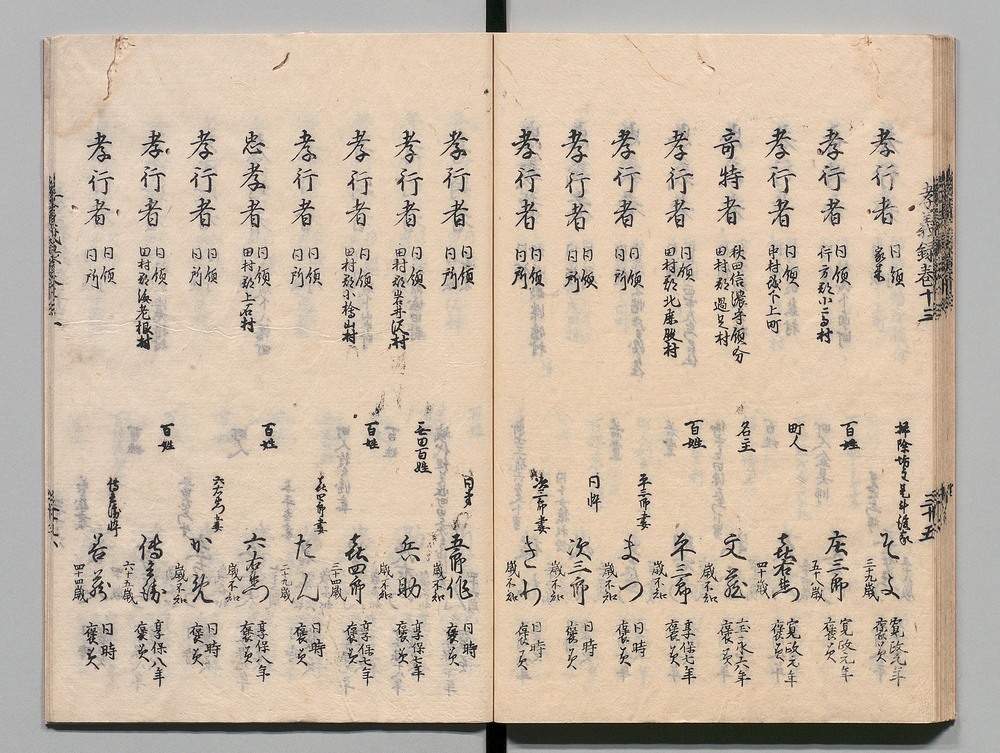 孝義録巻十三
孝行者 同領 家中 掃除坊主 そよ 三十九歳 寛政元年 褒美
孝行者 同領 行方郡小高村 百姓 庄三郎 五十八歳 寛政元年 褒美
孝行者 同領 中村城下上町 町人 喜右衛門 四十歳 寛政元年 褒美
奇特者 秋田信濃守領分 田村郡過足村 名主 文蔵 歳不知 宝永六年 褒美
孝行者 同領 田村郡北鹿股村 百姓 平三郎 歳不知 享保七年 褒美
孝行者 同領 同所 平三郎妻 まつ 歳不知 同時 褒美
孝行者 同領 同所 同忰 次三郎 歳不知 同時 褒美
孝行者 同領 同所 次三郎妻 きわ 歳不知 同時 褒美
孝行者 同領 同所 同弟 五郎作 歳不知 同時 褒美
孝行者 同領 田村郡岩井沢村 無田百姓 兵助 歳不知 享保七年 褒美
孝行者 同領 田村郡小檜山村 百姓 喜四郎 三十四歳 享保七年 褒美
孝行者 同領 同所 喜四郎妻 たん 二十九歳 同時 褒美
忠孝者 同領 田村郡上石村 百姓 六右衛門 歳不知 享保八年 褒美
孝行者 同領 同所 六右衛門妻 歳不知 同時 褒美
孝行者 同領 田村郡海老根村 百姓 六十五歳 享保八年 褒美
孝行者 同領 同所 四十四歳 同時 褒美